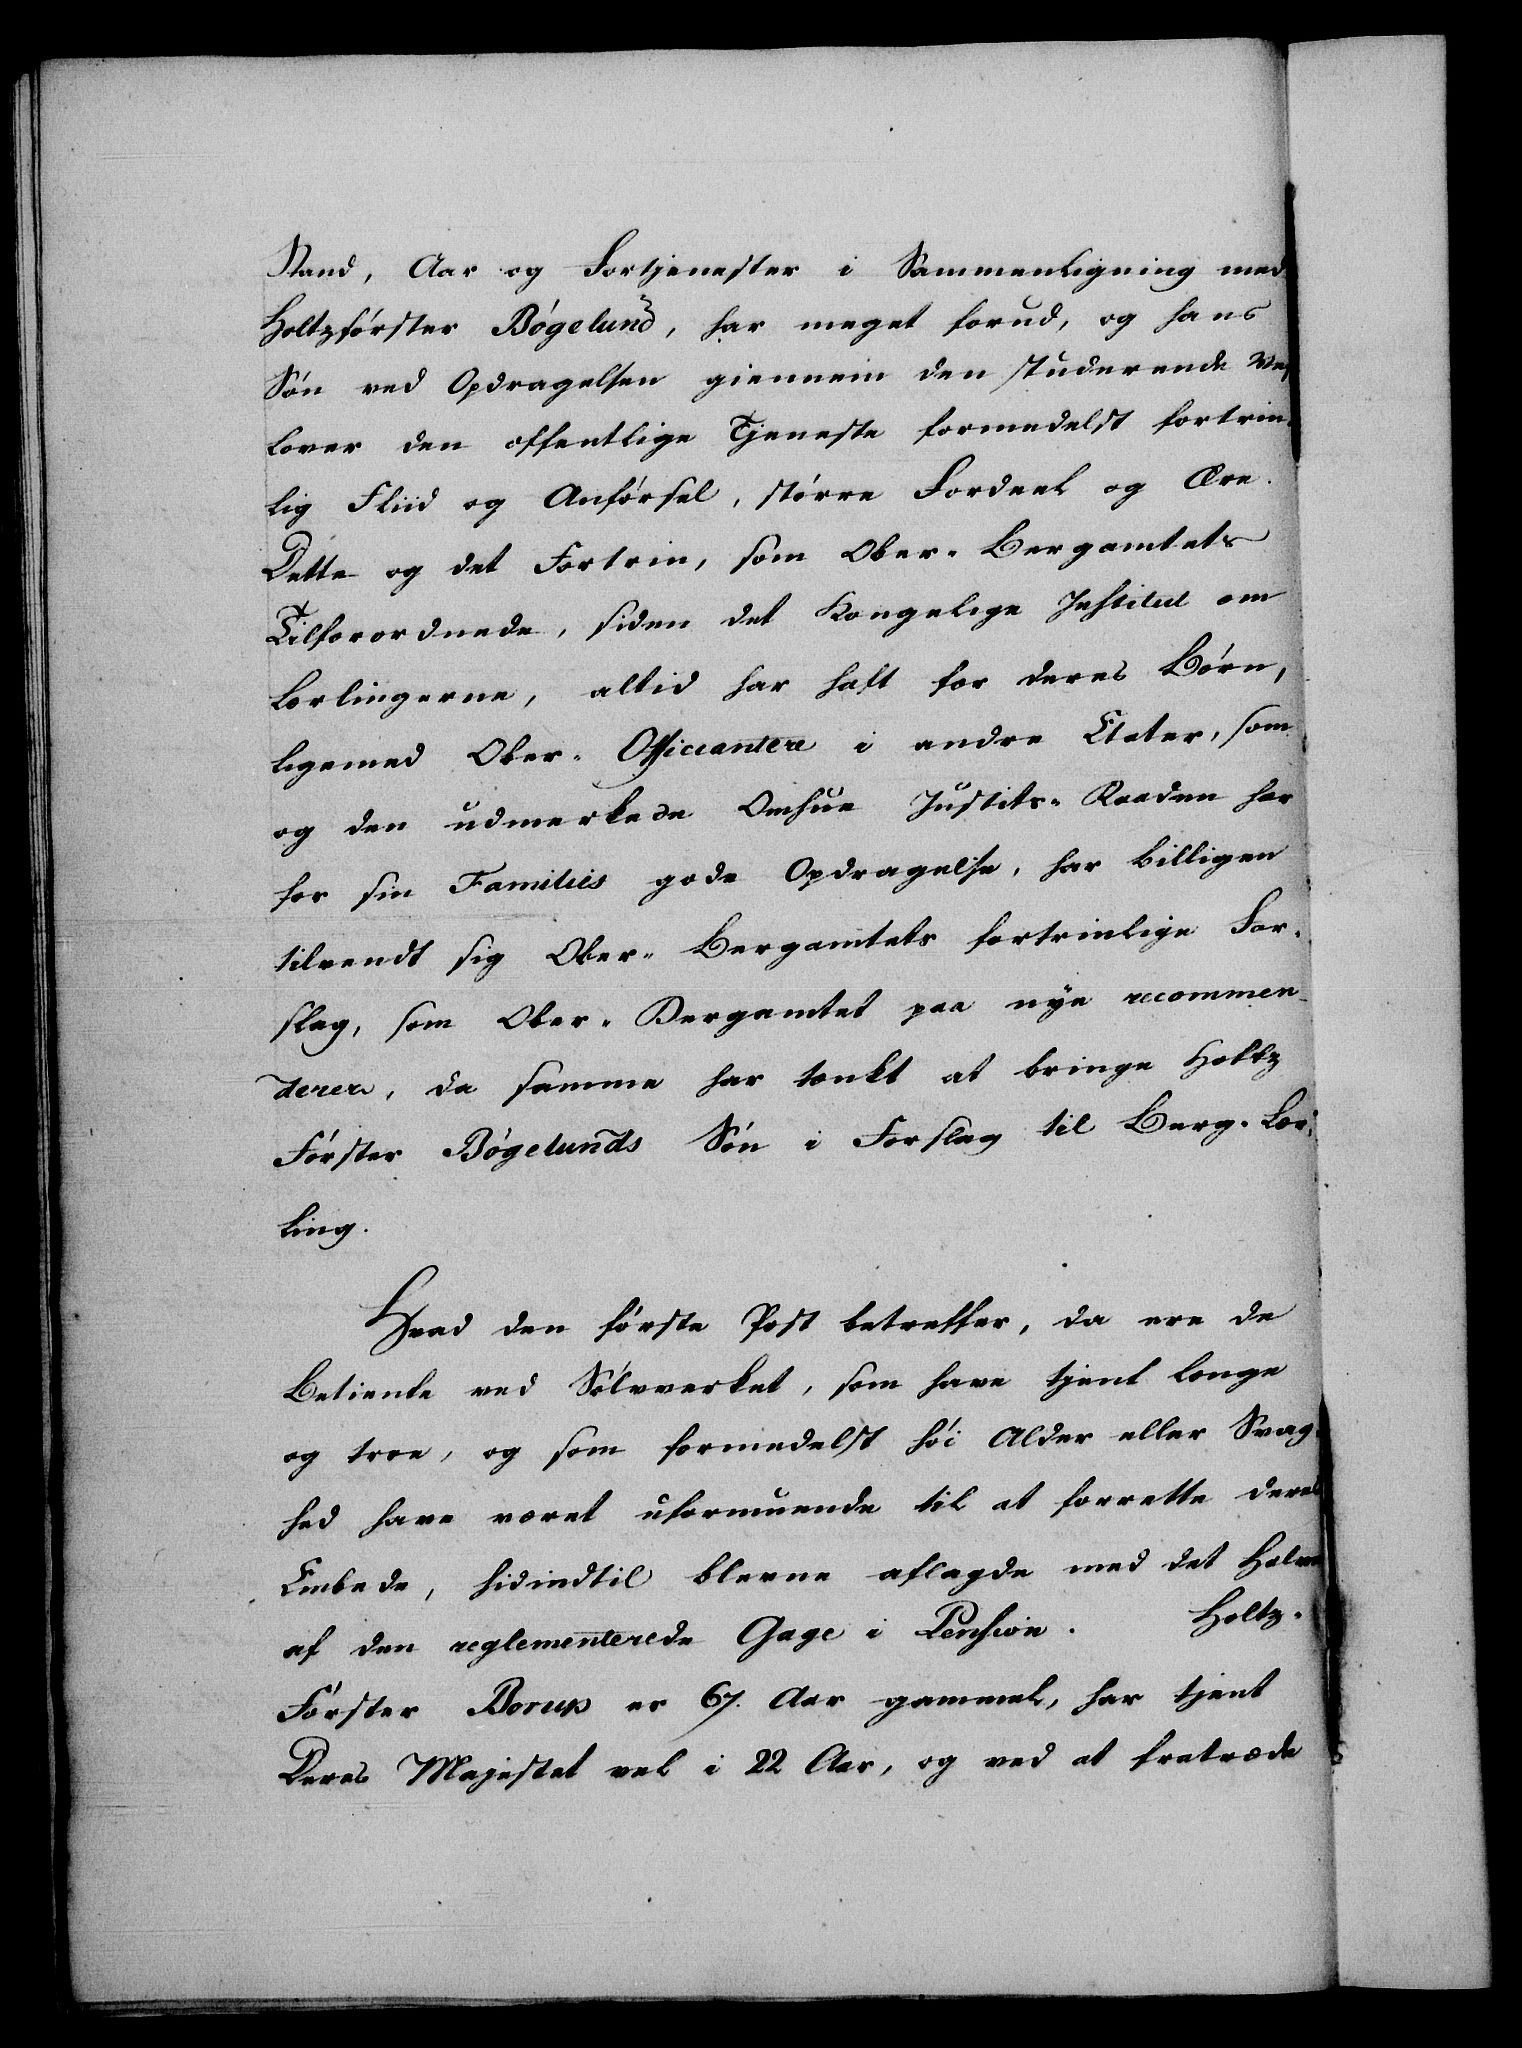 Stand, Aar og Fortjenester i Sammenligning med
Holtzförster Bögelund, har meget forud, og hans
Sön ved Opdragelsen giennem den studerende Vej
lover den offentlige Tjeneste formedelst fortrin-
lig Fliid og Anförsel, större Fordeel og Ære.
Dette og det Fortrin, som Ober-Bergamtets
Tilforordnede, siden det Kongelige Institut om
Lærlingerne, altid har haft for deres Börn,
ligemed Ober-Officiantere i andre Etater, som
og den udmerkede Omhue Justits-Raaden har
for sin Familiis gode Opdragelse, har billigen
tilvendt sig Ober-Bergamtets fortrinlige For-
slag, som Ober-Bergamtet paa nye recommen-
derer, da samme har tænkt at bringe Holtz
Förster Bögelunds Sön i Forslag til Berg-Lær-
ling.
Hvad den förste Post betreffer, da ere de
Betiente ved Sölvverket, som have tjent længe
og troe, og som formedelst höi Alder eller Svag-
hed have været uformuende til at forrette deres
Embede, hidindtil blevne aflagde med det Halve
af den reglementerede Gage i Pension. Holtz-
Förster Borup er 67. Aar gammel, har tjent
Deres Majestet vel i 22 Aar, og ved at fratræde